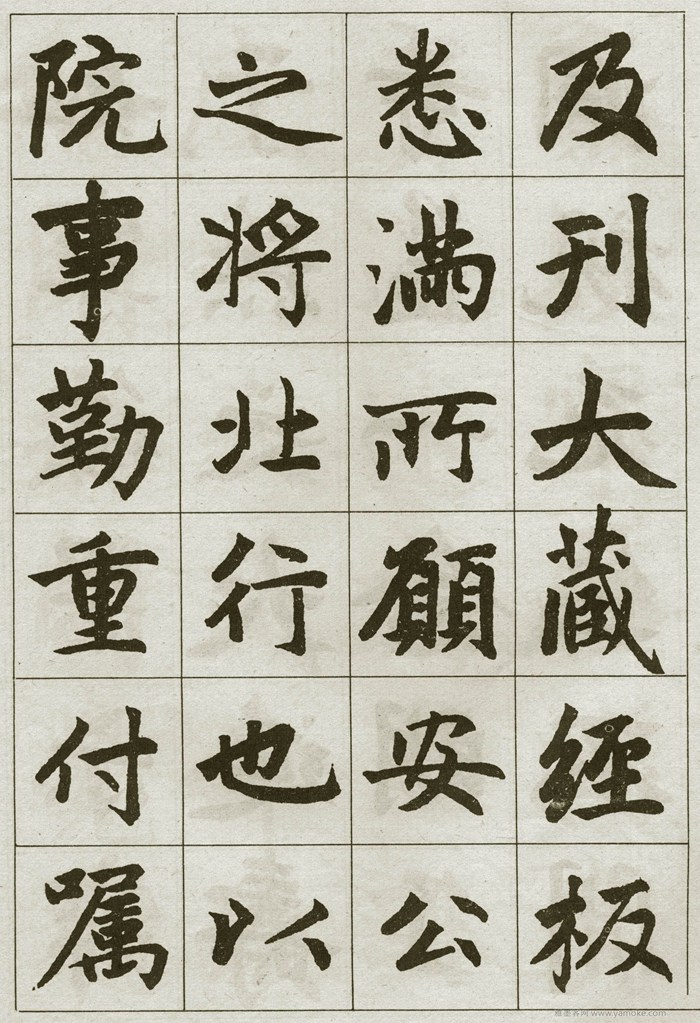 及刊大藏經板
悉滿所願安公
之將北行也以
院事勤重付嘱
雅墨客网 www.yamoke.com